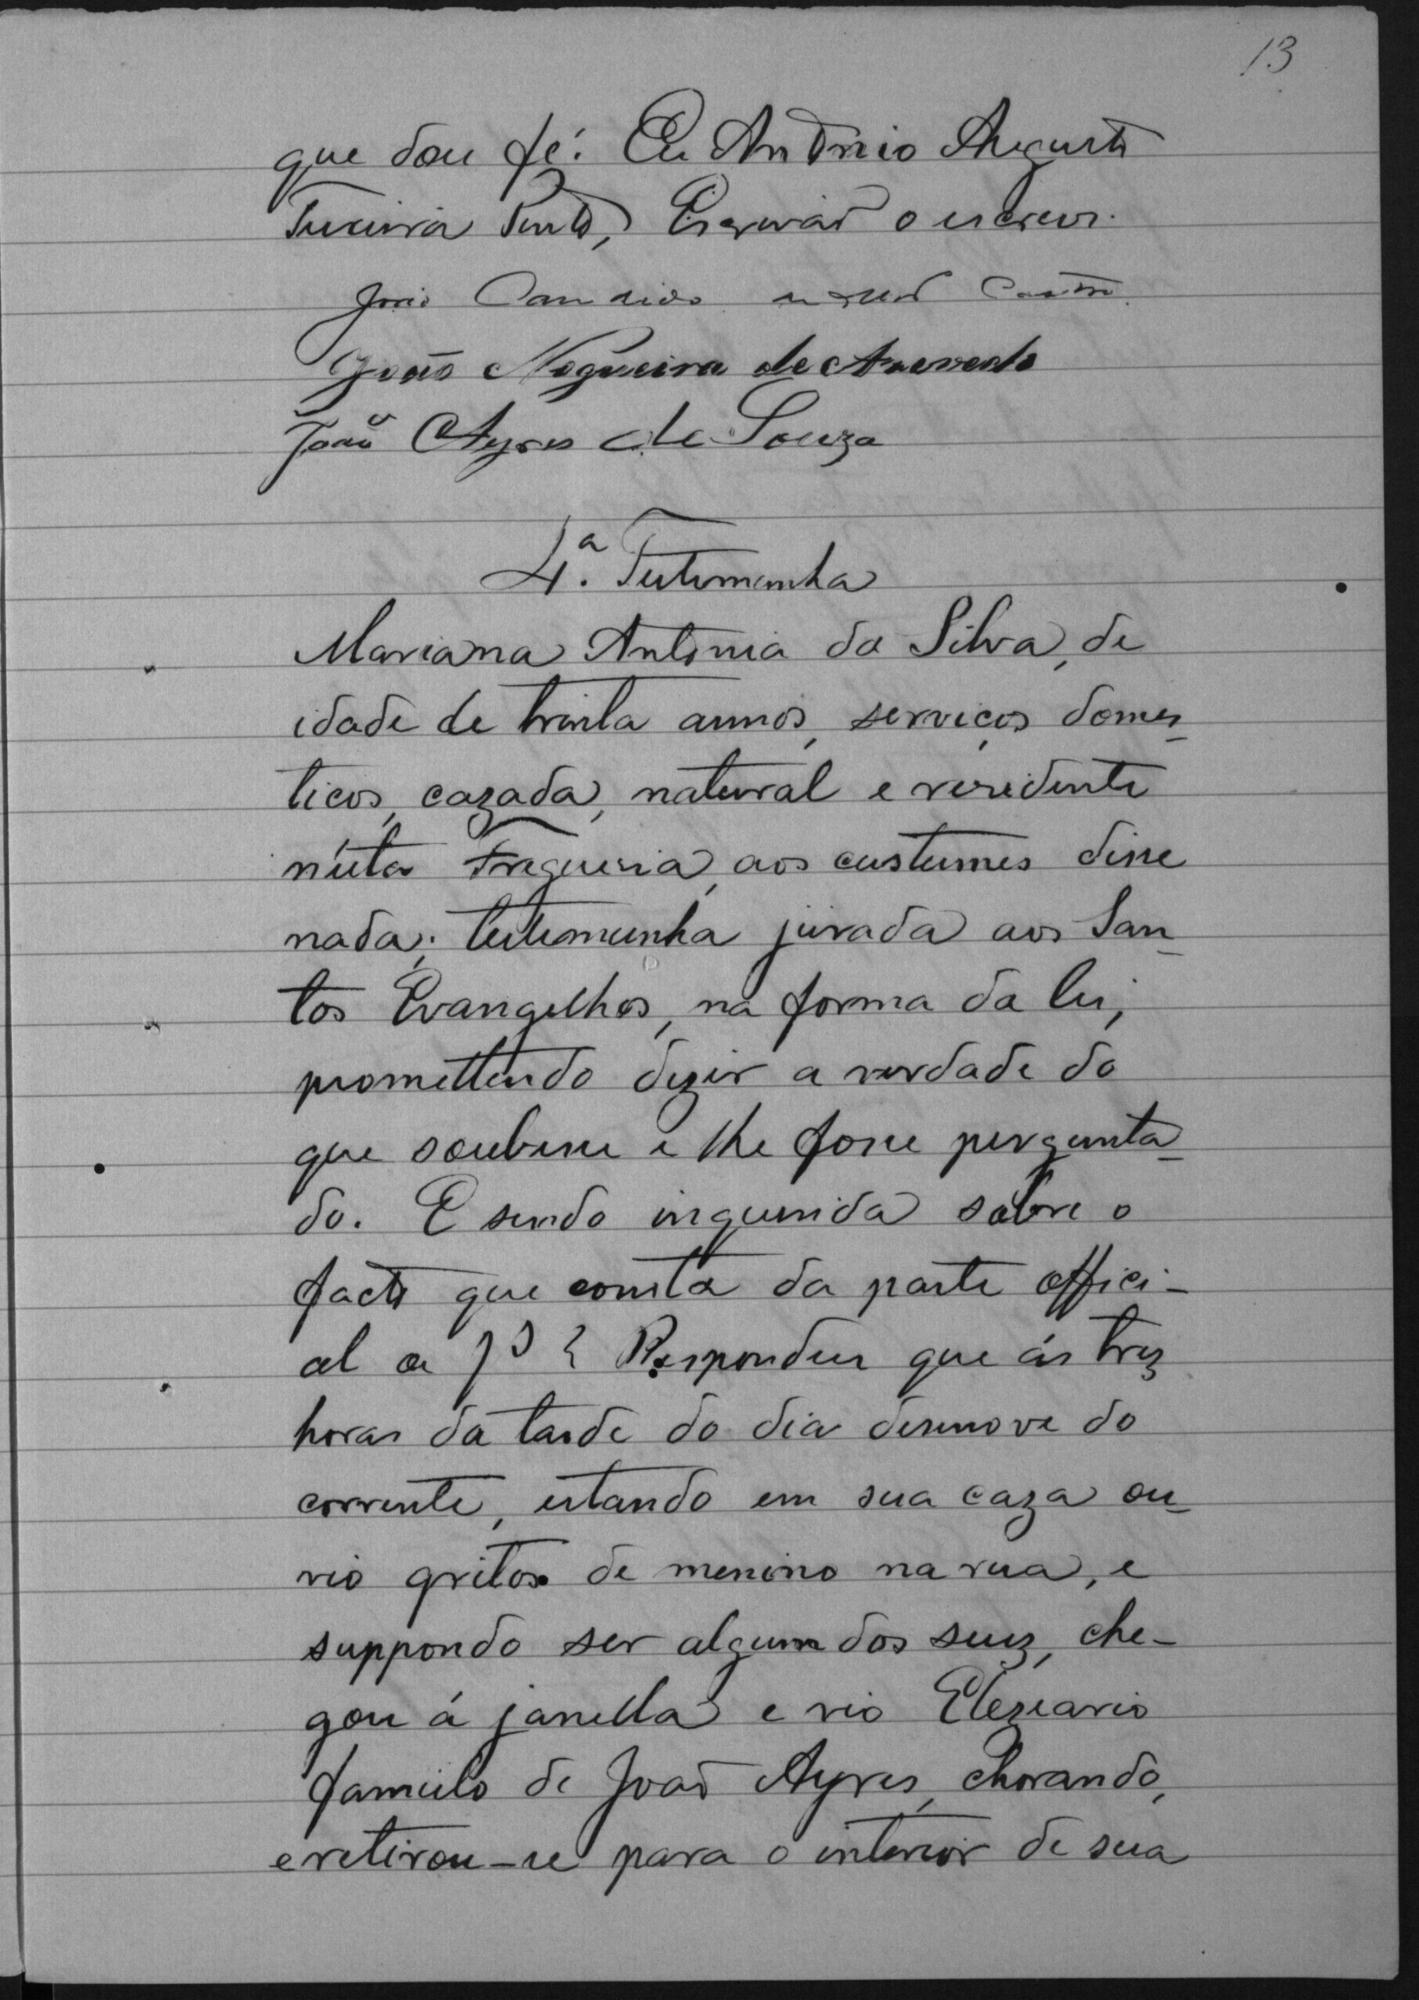 13
que dou fé. Eu Antonio Augusto
Teixeira Pinto, Escrivaõ o escrevi.
João Candido
João Nogueira de Azevedo
Joaõ Ayres de Souza
4.ª Testemunha
Mariana Antonia da Silva, de
idade de trinta annos, serviços domes_
ticos, cazada, natural e residente
n'esta Freguesia, aos custumes disse
nada; testemunha jurada aos San_
tos Evangelhos, na forma da lei,
promettendo dizer a verdade do
que soubesse e lhe fosse pergunta_
do. E sendo inquirida sobre o
facto que consta da parte offici-
al a Respondeu que ás trez
horas da tarde do dia desenove do
corrente, estando em sua caza ou_
vio gritos de menino na rua, e
suppondo ser algum dos seus, che-
gou á janella e vio Elesiario
famulo de Joaõ Ayres, chorando,
e retirou-se para o interior de sua